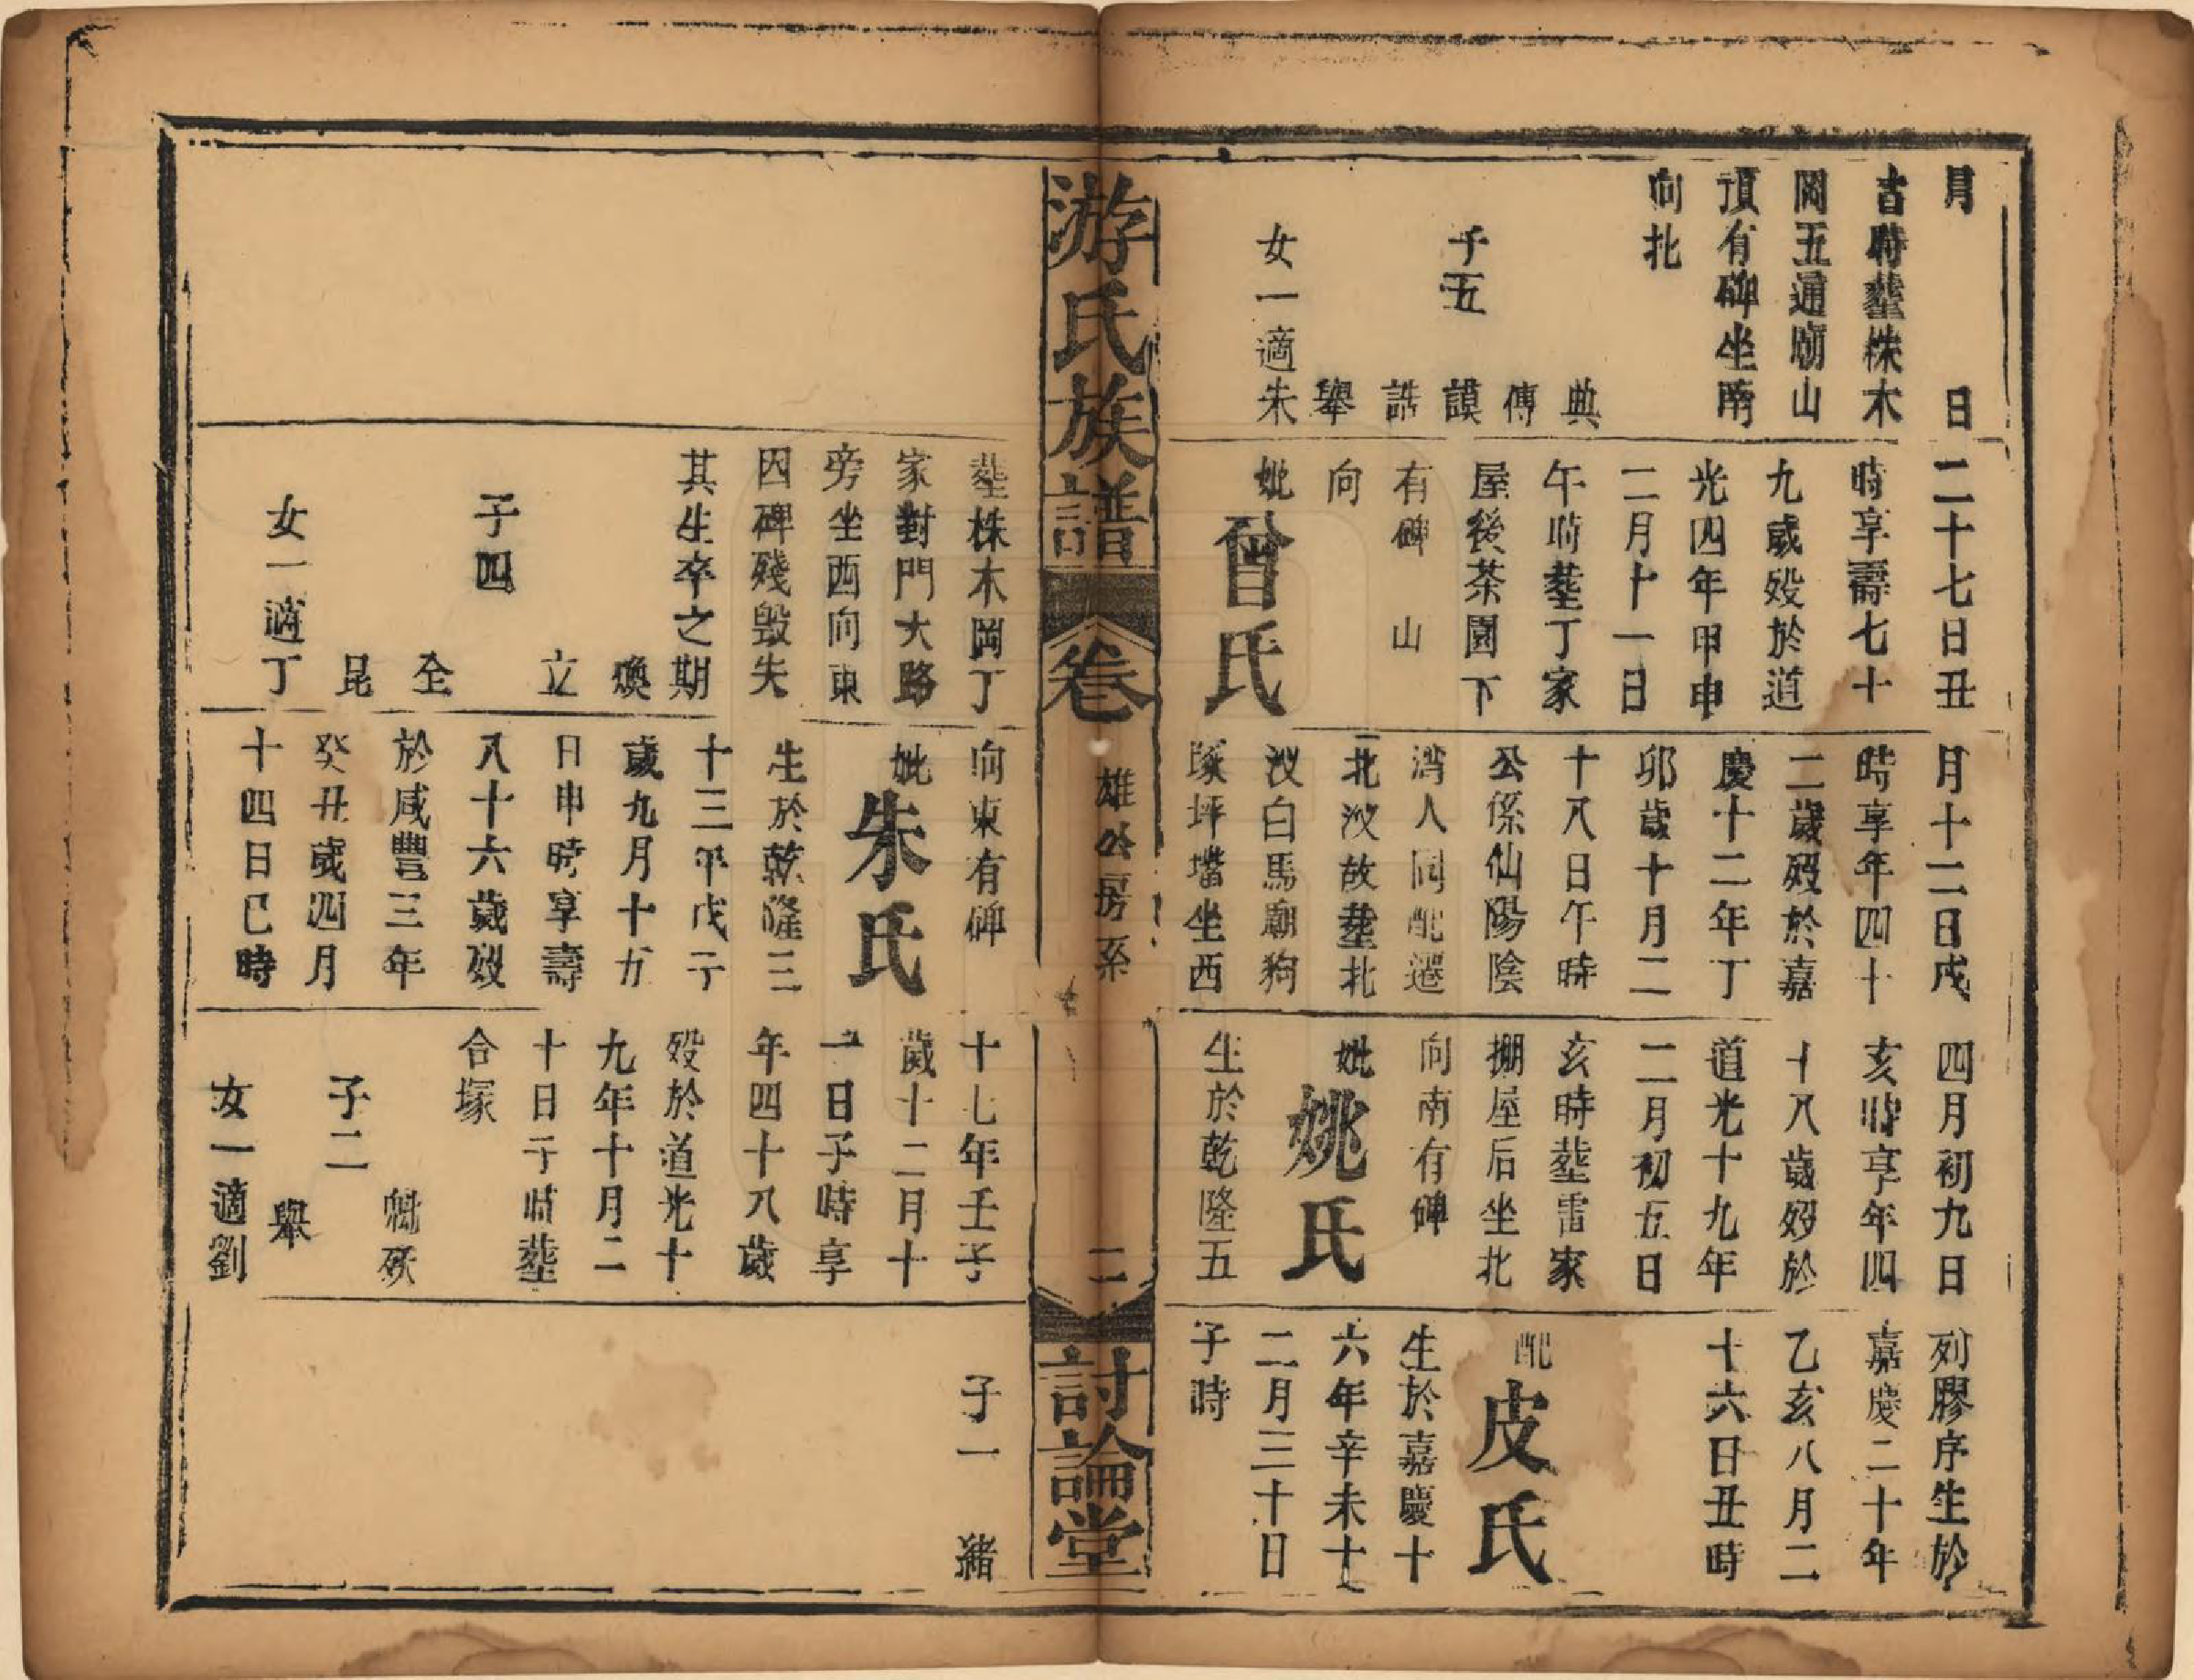 月　日
吉時塟株木
岡五通廟山
頂有碑坐南
向北
子五
典
傅
謨
誥
舉
女一適朱
二十七日丑
時享壽七十
九歲歿於道
光四年甲申
二月十一日
午時塟丁家
屋後茶園下
有碑　山
向
妣曾氏
月十二日戌
時享年四十
二歲歿於嘉
慶十二年丁
卯歲十月二
十八日午時
公係仙陽陰
灣人同配遷
北汊故塟北
汊白馬廟狗
塚坪壋坐西
四月初九日
亥時享年四
十八歲歿於
道光十九年
二月初五日
亥時塟雷家
掤屋后坐北
向南有碑
妣姚氏
生於乾隆五
列膠序生於
嘉慶二十年
乙亥八月二
十六日丑時
配皮氏
生於嘉慶十
六年辛未十
二月三十日
子時
游氏族譜
卷
雄公房系
二
討論堂
塟株木岡丁
家對門大路
旁坐西向東
因碑殘毁失
其生卒之期
子四
煥
立
全
昆
女一適丁
向東有碑
妣朱氏
生於乾隆三
十三年戊子
歲九月十五
日申時享壽
八十六歲歿
於咸豐三年
癸丑歲四月
十四日巳時
十七年壬子
歲十二月十
一日子時享
年四十八歲
歿於道光十
九年十月二
十日子時塟
合塚
子二
殀
舉
女一適劉
子一　緒